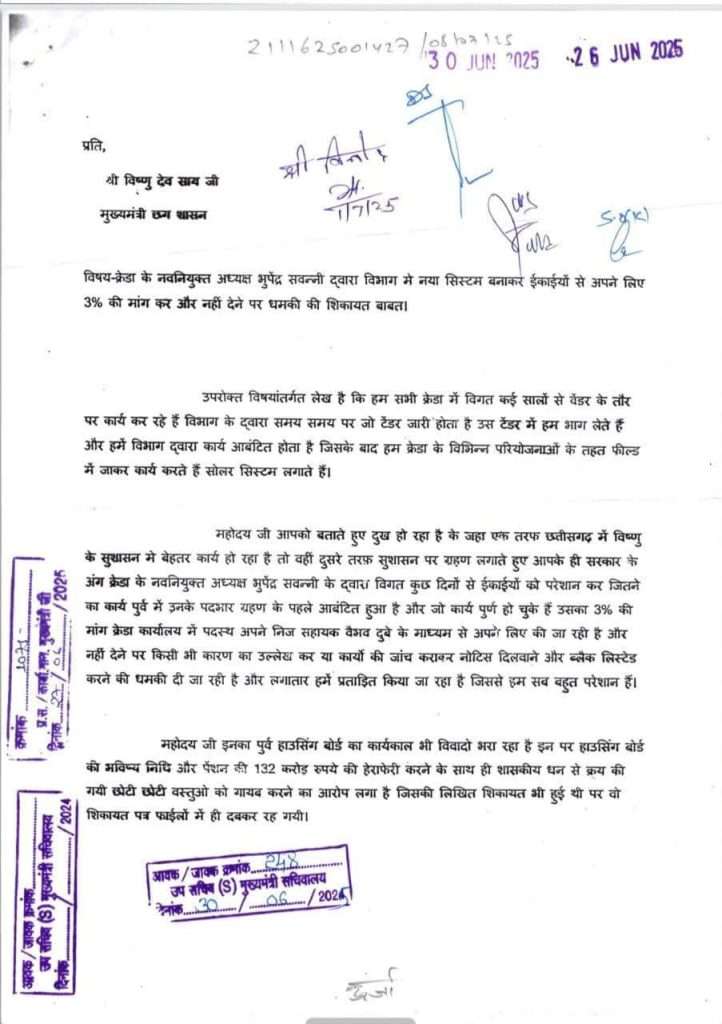 2111625001427 /08/07/25
30 JUN 2025
26 JUN 2025
प्रति,
श्री विष्णु देव साय जी
मुख्यमंत्री छग शासन
श्री
1/7/25
विषय-क्रेडा के नवनियुक्त अध्यक्ष भुपेंद्र सवन्नी द्वारा विभाग मे नया सिस्टम बनाकर ईकाईयों से अपने लिए
3% की मांग कर और नहीं देने पर धमकी की शिकायत बाबत।
उपरोक्त विषयांतर्गत लेख है कि हम सभी क्रेडा में विगत कई सालों से वेंडर के तौर
पर कार्य कर रहे हैं विभाग के द्वारा समय समय पर जो टेंडर जारी होता है उस टेंडर में हम भाग लेते हैं
और हमें विभाग द्वारा कार्य आबंटित होता है जिसके बाद हम क्रेडा के विभिन्न परियोजनाओं के तहत फील्ड
में जाकर कार्य करते हैं सोलर सिस्टम लगाते हैं।
महोदय जी आपको बताते हुए दुख हो रहा है के जहा एक तरफ छत्तीसगढ़ में विष्णु
के सुशासन मे बेहतर कार्य हो रहा है तो वहीं दुसरे तरफ़ सुशासन पर ग्रहण लगाते हुए आपके ही सरकार के
अंग क्रेडा के नवनियुक्त अध्यक्ष भुपेंद्र सवन्नी के द्वारा विगत कुछ दिनों से ईकाईयों को परेशान कर जितने
का कार्य पुर्व में उनके पदभार ग्रहण के पहले आबंटित हुआ है और जो कार्य पुर्ण हो चुके हैं उसका 3% की
मांग क्रेडा कार्यालय में पदस्थ अपने निज सहायक वैभव दुबे के माध्यम से अपने लिए की जा रही है और
नहीं देने पर किसी भी कारण का उल्लेख कर या कार्यो की जांच कराकर नोटिस दिलवाने और ब्लैक लिस्टेड
करने की धमकी दी जा रही है और लगातार हमें प्रताड़ित किया जा रहा है जिससे हम सब बहुत परेशान हैं।
महोदय जी इनका पुर्व हाउसिंग बोर्ड का कार्यकाल भी विवादो भरा रहा है इन पर हाउसिंग बोर्ड
की भविष्य निधि और पेंशन की 132 करोड़ रुपये की हेराफेरी करने के साथ ही शासकीय धन से क्रय की
गयी छोटी छोटी वस्तुओ को गायब करने का आरोप लगा है जिसकी लिखित शिकायत भी हुई थी पर वो
शिकायत पत्र फाईलों में ही दबकर रह गयी।
क्रमांक 1071
प्र.स./कार्या.मान. मुख्यमंत्री जी
दिनांक 27/06/2025
आवक/जावक क्रमांक
उप सचिव (S) मुख्यमंत्री सचिवालय
दिनांक / /2024
आवक/जावक क्रमांक 248
उप सचिव (S) मुख्यमंत्री सचिवालय
दिनांक 30/06/2025